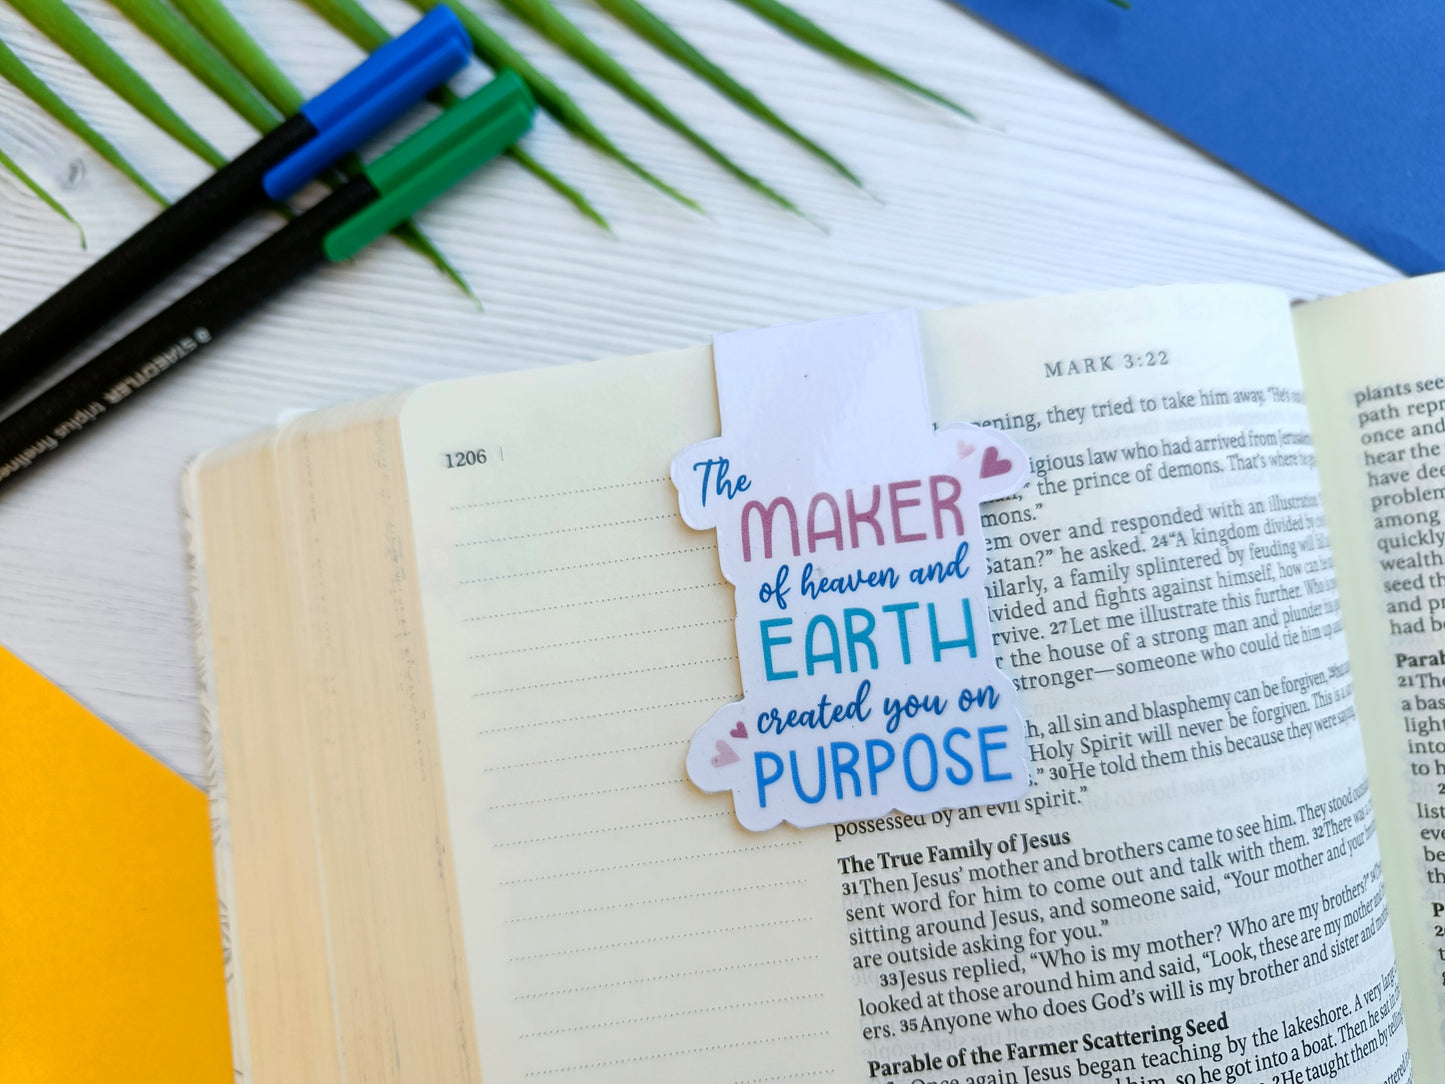 STAEDTLER triplus fineliner
1206
MARK 3:22
The
MAKER
of heaven and
EARTH
created you on
PURPOSE
ening, they tried to take him away. "He's
igious law who had arrived from Jerusalem
the prince of demons. That's where
mons."
em over and responded with an illustration.
Satan?" he asked. 24"A kingdom divided by
ilarly, a family splintered by feuding will
ivided and fights against himself, how can
rvive. 27Let me illustrate this further. Who is
r the house of a strong man and plunder his
stronger—someone who could tie him up and
h, all sin and blasphemy can be forgiven,
Holy Spirit will never be forgiven. This is a
." 30He told them this because they were saying,
possessed by an evil spirit."
The True Family of Jesus
31Then Jesus' mother and brothers came to see him. They stood
sent word for him to come out and talk with them. 32There was a
sitting around Jesus, and someone said, "Your mother and your
are outside asking for you."
33Jesus replied, "Who is my mother? Who are my brothers?"
looked at those around him and said, "Look, these are my mother and
ers. 35Anyone who does God's will is my brother and sister and
Parable of the Farmer Scattering Seed
Once again Jesus began teaching by the lakeshore. A very large
him, so he got into a boat. Then he sat in
2He taught them by telling
plants see
path repr
once and
hear the
have dee
problem
among
quickly
wealth
seed th
and pr
had be
Parab
21The
a bas
light
into
to h
list
eve
be
th
P